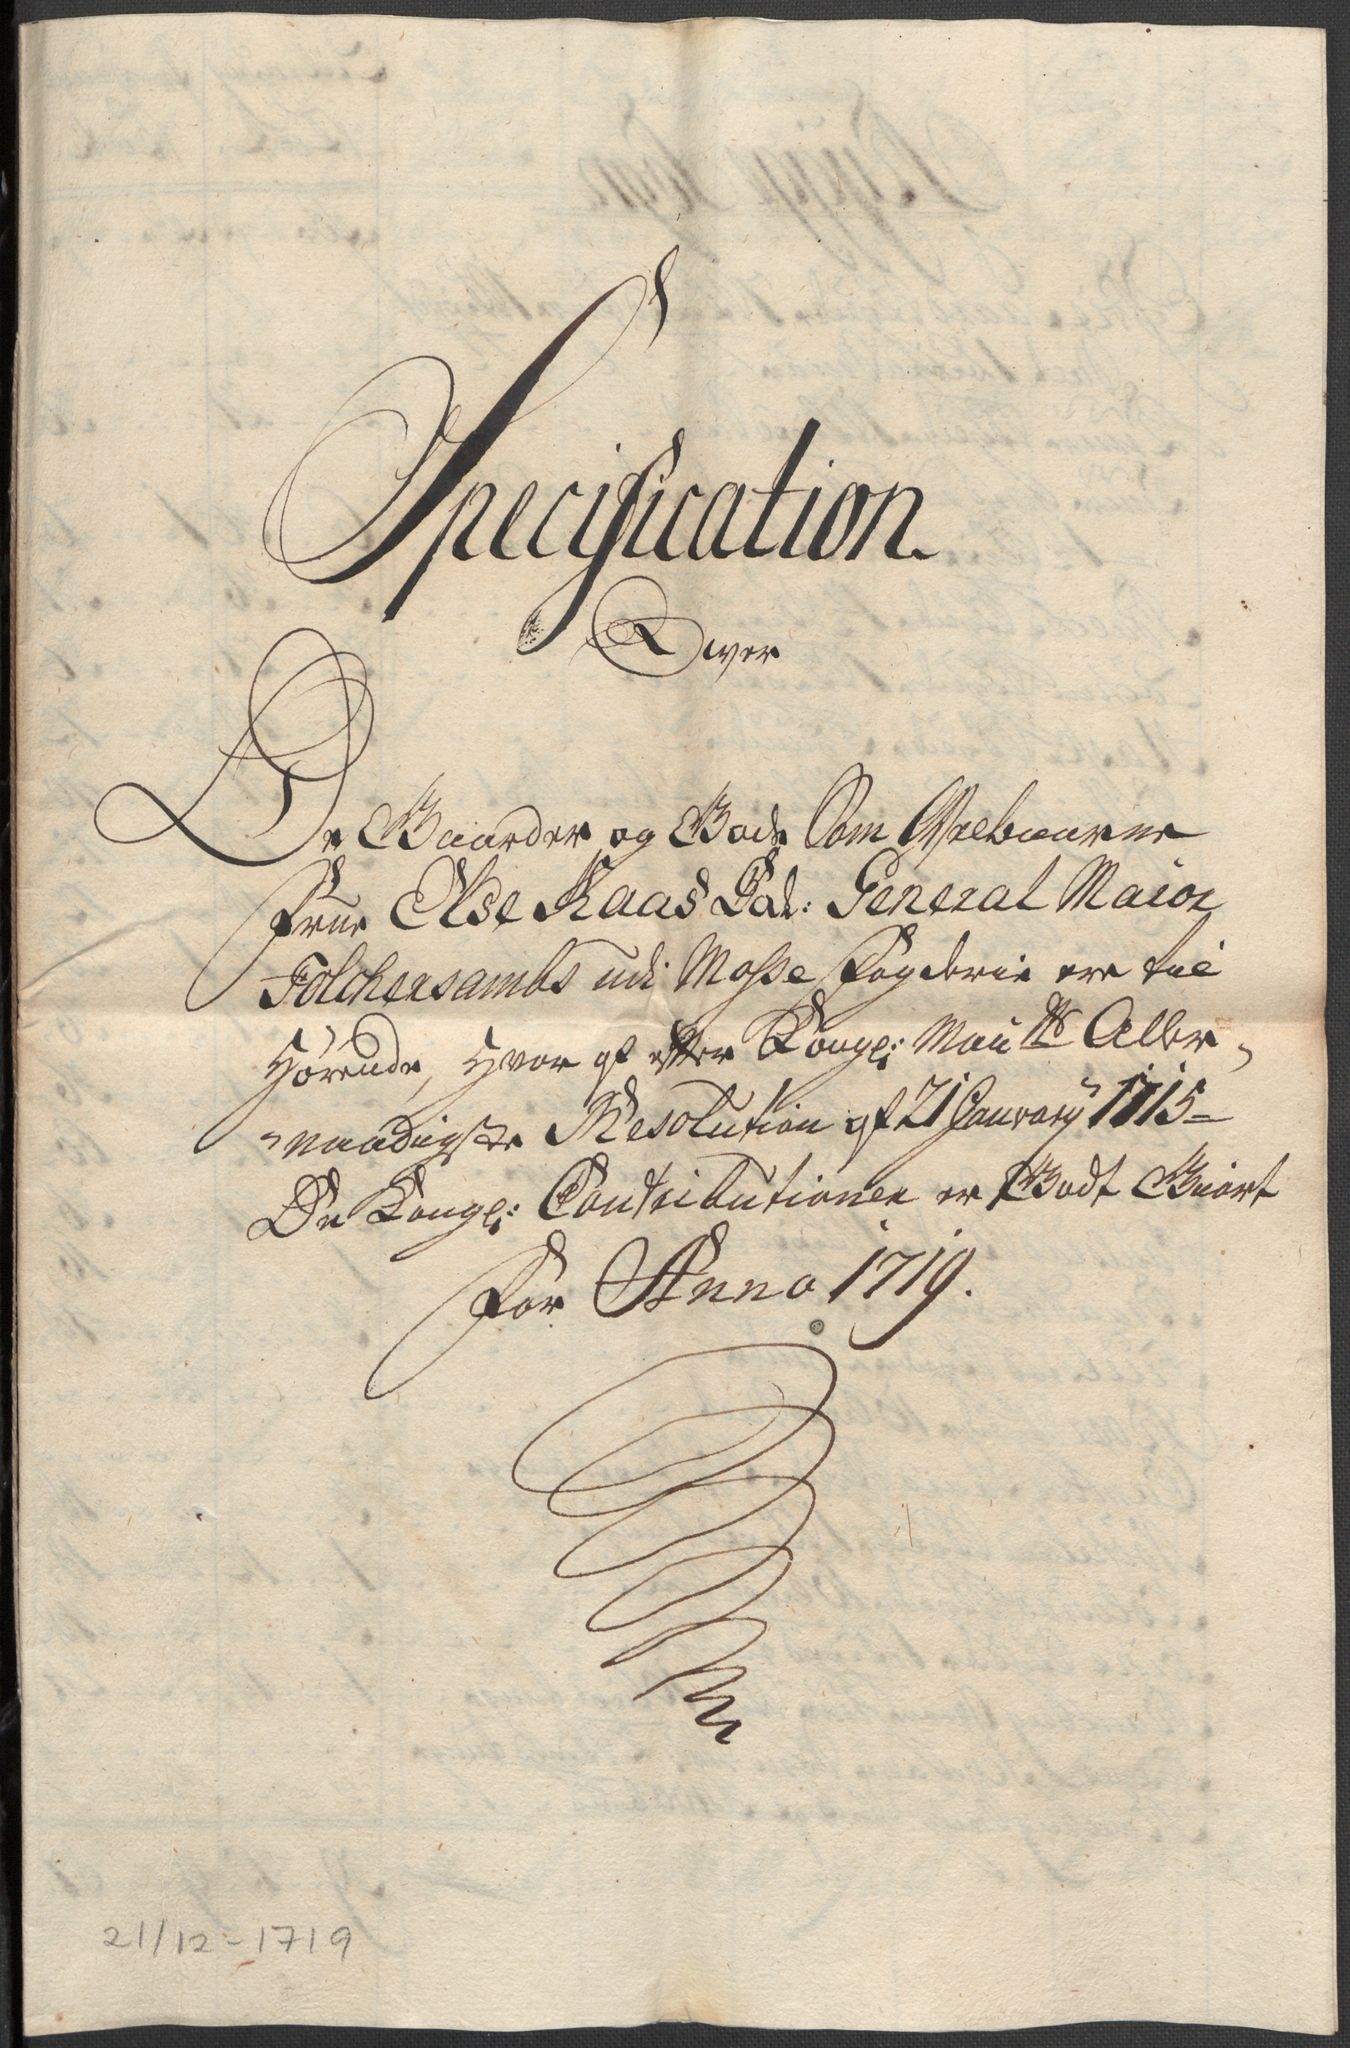 Specification.
Over
De Gaarder og Gods Som Welbaarne
Frue Else Kaas Sal: General Maior
Tolchersambs udi Mosse Fogderie ere til
Hørende, Hvor af efter Kongl: May:tts Aller,
naadigste Resolution af 21 January 1715 =
De Kongl: Contributioner er Godt Giort
For Anno 1719.
21/12-1719